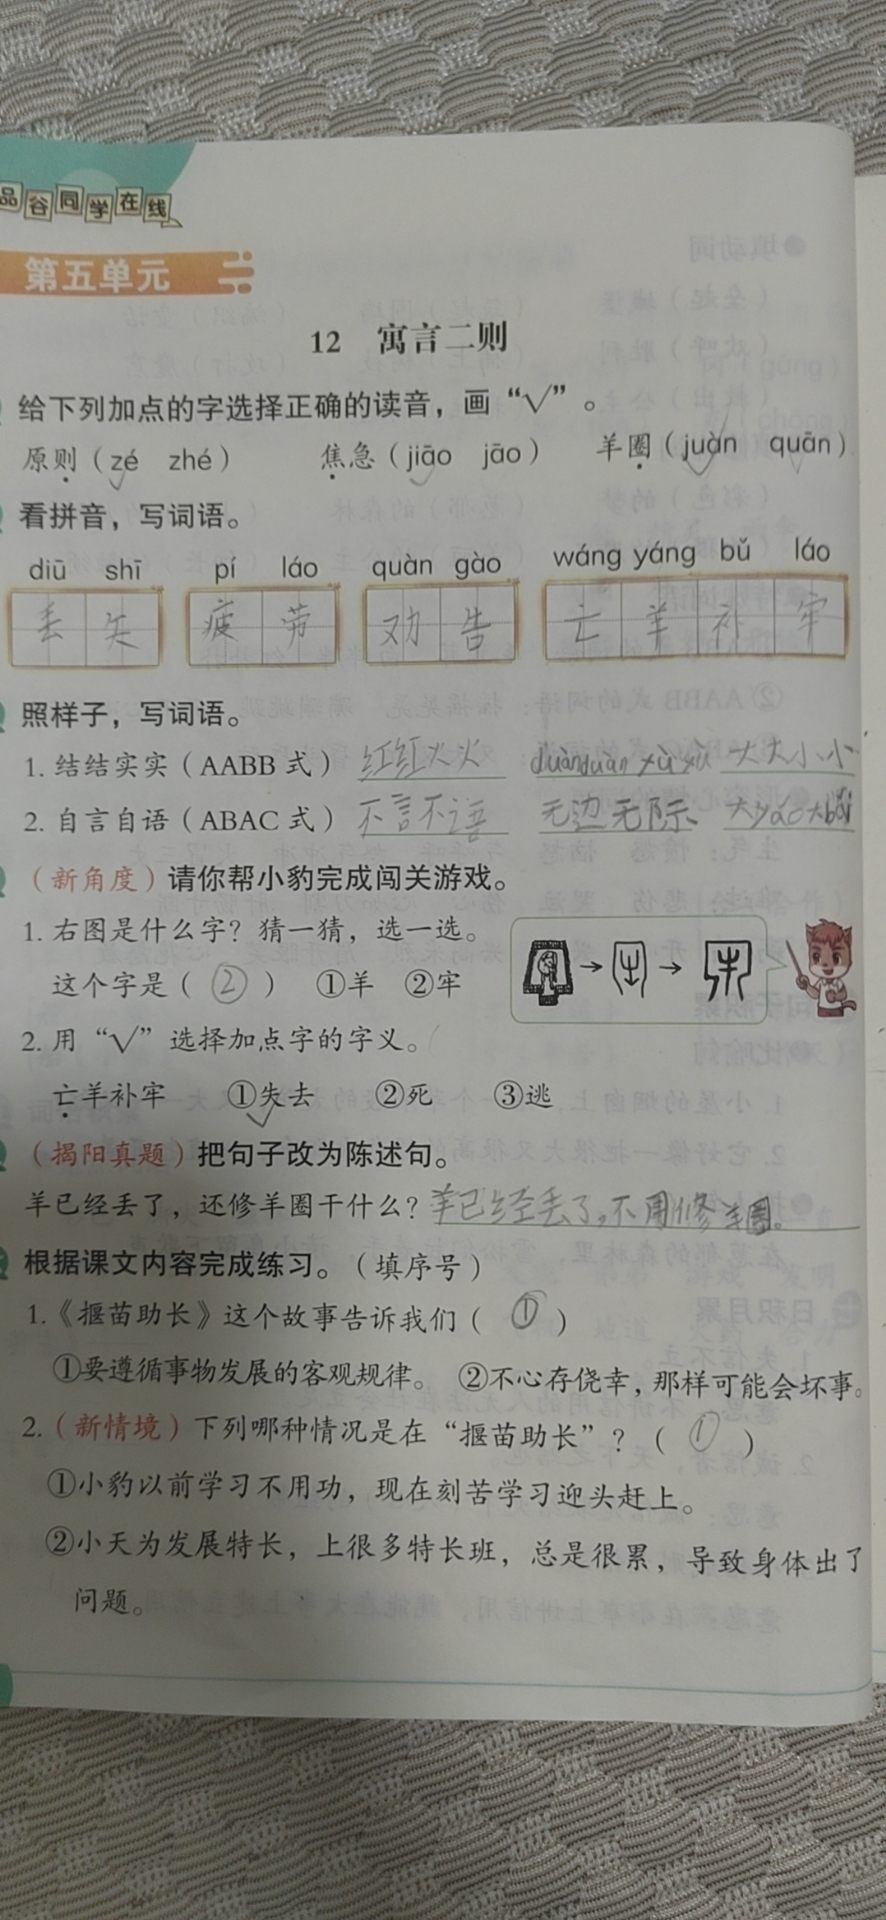 品谷同学在线
第五单元
12 寓言二则
给下列加点的字选择正确的读音，画“√”。
原则（zé zhé） 焦急（jiāo jāo） 羊圈（juàn quān）
看拼音，写词语。
diū shī pí láo quàn gào wáng yáng bǔ láo
丢 失 疲 劳 劝 告 亡 羊 补 牢
照样子，写词语。
1. 结结实实（AABB 式） 红红火火 duànduàn xù xù 大大小小
2. 自言自语（ABAC 式） 不言不语 无边无际 大yáo大bǎi
（新角度）请你帮小豹完成闯关游戏。
1. 右图是什么字？猜一猜，选一选。
这个字是（ ② ） ①羊 ②牢
2. 用“√”选择加点字的字义。
亡羊补牢 ①失去 ②死 ③逃
（揭阳真题）把句子改为陈述句。
羊已经丢了，还修羊圈干什么？羊已经丢了，不用修羊圈。
根据课文内容完成练习。（填序号）
1.《揠苗助长》这个故事告诉我们（ ① ）
①要遵循事物发展的客观规律。 ②不心存侥幸，那样可能会坏事。
2.（新情境）下列哪种情况是在“揠苗助长”？（ ① ）
①小豹以前学习不用功，现在刻苦学习迎头赶上。
②小天为发展特长，上很多特长班，总是很累，导致身体出了
问题。